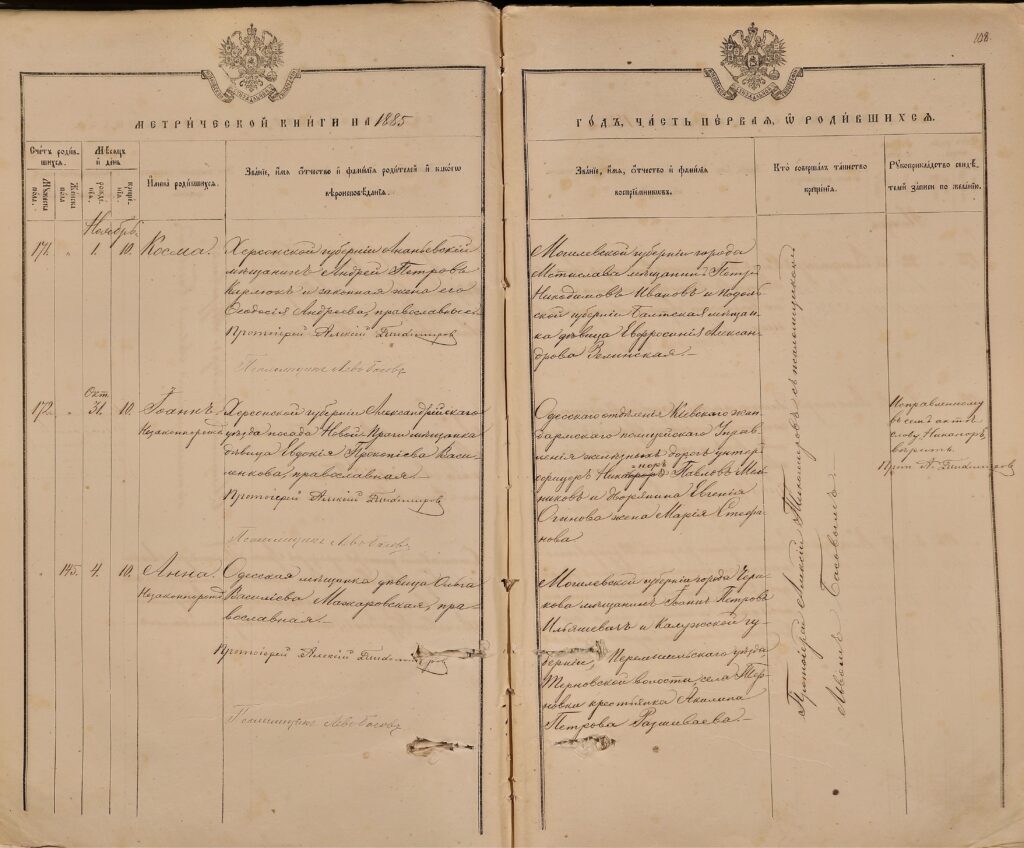 108.
МЕТРИЧЕСКОЙ КНИГИ НА 1885
ГОДЪ, ЧАСТЬ ПЕРВАЯ, Ѡ РОДИВШИХСЯ.
Счетъ родив-
шихся.
Мужеска
пола.
Женска
пола.
Мѣсяцъ
и день
рожде-
нія.
креще-
нія.
Имена родившихся.
Званіе, имя, отчество и фамилія родителей и какого
вѣроисповѣданія.
Званіе, имя, отчество и фамилія
воспріемниковъ.
Кто совершалъ таинство
крещенія.
Рукоприкладство свидѣ-
телей записи по желанію.
Ноябрь.
171. " 1. 10. Косма.
Херсонской губерніи Ананьевскій
мѣщанинъ Андрей Петровъ
и законная жена его
Ѳеодосія Андреева, православные
Протоіерей Алексій
Псаломщикъ Левъ Басовъ
Могилевской губерніи города
Мстиславля мѣщанинъ Петръ
Никодимовъ Ивановъ и Подоль-
ской губерніи Балтская мѣщан-
ка дѣвица Евфросинія Алексан-
дрова Зелинская.—
Окт.
172. " 31. 10. Іоаннъ.
Незаконнорожд.
Херсонской губерніи Александрійскаго
уѣзда посада Новой-Праги мѣщанка
дѣвица Евдокія Прокопіева Васи-
ленкова, православная.—
Протоіерей Алексій
Псаломщикъ Левъ Басовъ
Одесскаго отдѣленія Кіевскаго жан-
дармскаго полицейскаго Управ-
ленія желѣзныхъ дорогъ унтеръ-
офицеръ Никаноръ Павловъ Мель-
никовъ и дворянина Евгенія
Огинова жена Марія Стефа-
нова.
Исправленному
въ семъ актѣ
слову Никаноръ,
вѣрить.
Прот. А.
" 145. 4. 10. Анна.
Незаконнорожд.
Одесская мѣщанка дѣвица Ольга
Василіева Макаровская, пра-
вославная.—
Протоіерей Алексій
Псаломщикъ Левъ Басовъ
Могилевской губерніи города Чери-
кова мѣщанинъ Іоаннъ Петровъ
Ильяшевичъ и Калужской гу-
берніи, Перемышльскаго уѣзда,
Терновской волости, села Тер-
новки крестьянка Акилина
Петрова Размиваева.—
Протоіерей Алексій съ псаломщикомъ
Львомъ Басовымъ